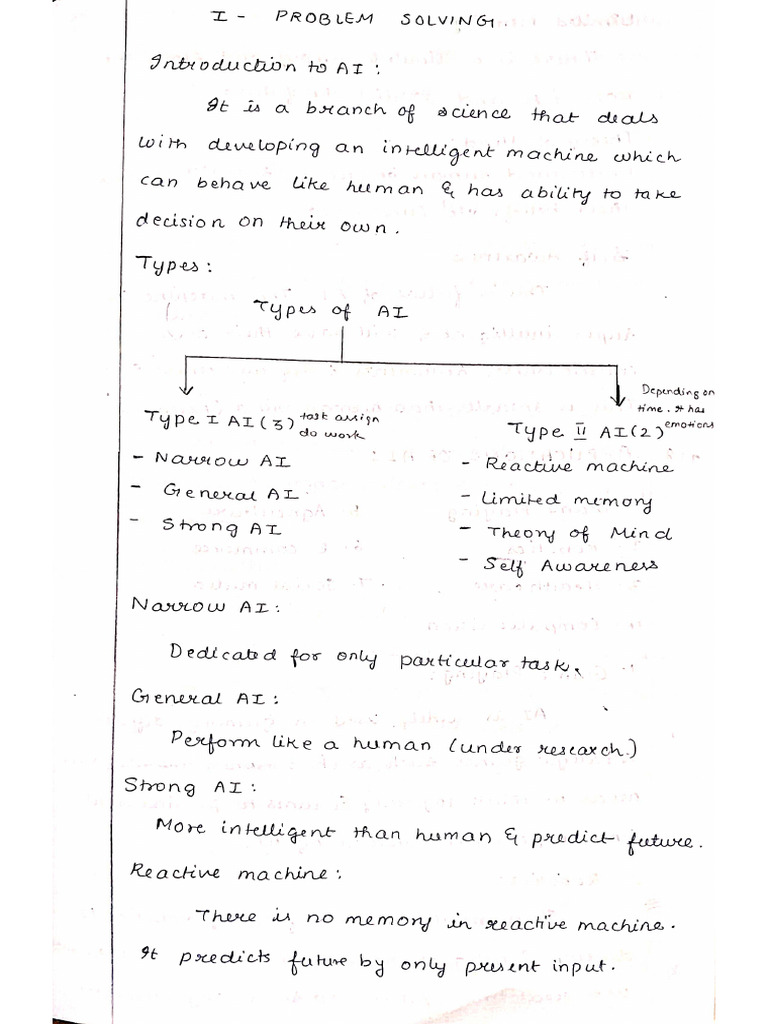 I - PROBLEM SOLVING.
Introduction to AI :
It is a branch of science that deals
with developing an intelligent machine which
can behave like human & has ability to take
decision on their own.
Types :
Types of AI
Type I AI (3) task assign
do work
- Narrow AI
- General AI
- Strong AI
Depending on
time. It has
emotions
Type II AI (2)
- Reactive machine
- Limited memory
- Theory of Mind
- Self Awareness
Narrow AI :
Dedicated for only particular task.
General AI :
Perform like a human (under research.)
Strong AI :
More intelligent than human & predict future.
Reactive machine :
There is no memory in reactive machine.
It predicts future by only present input.